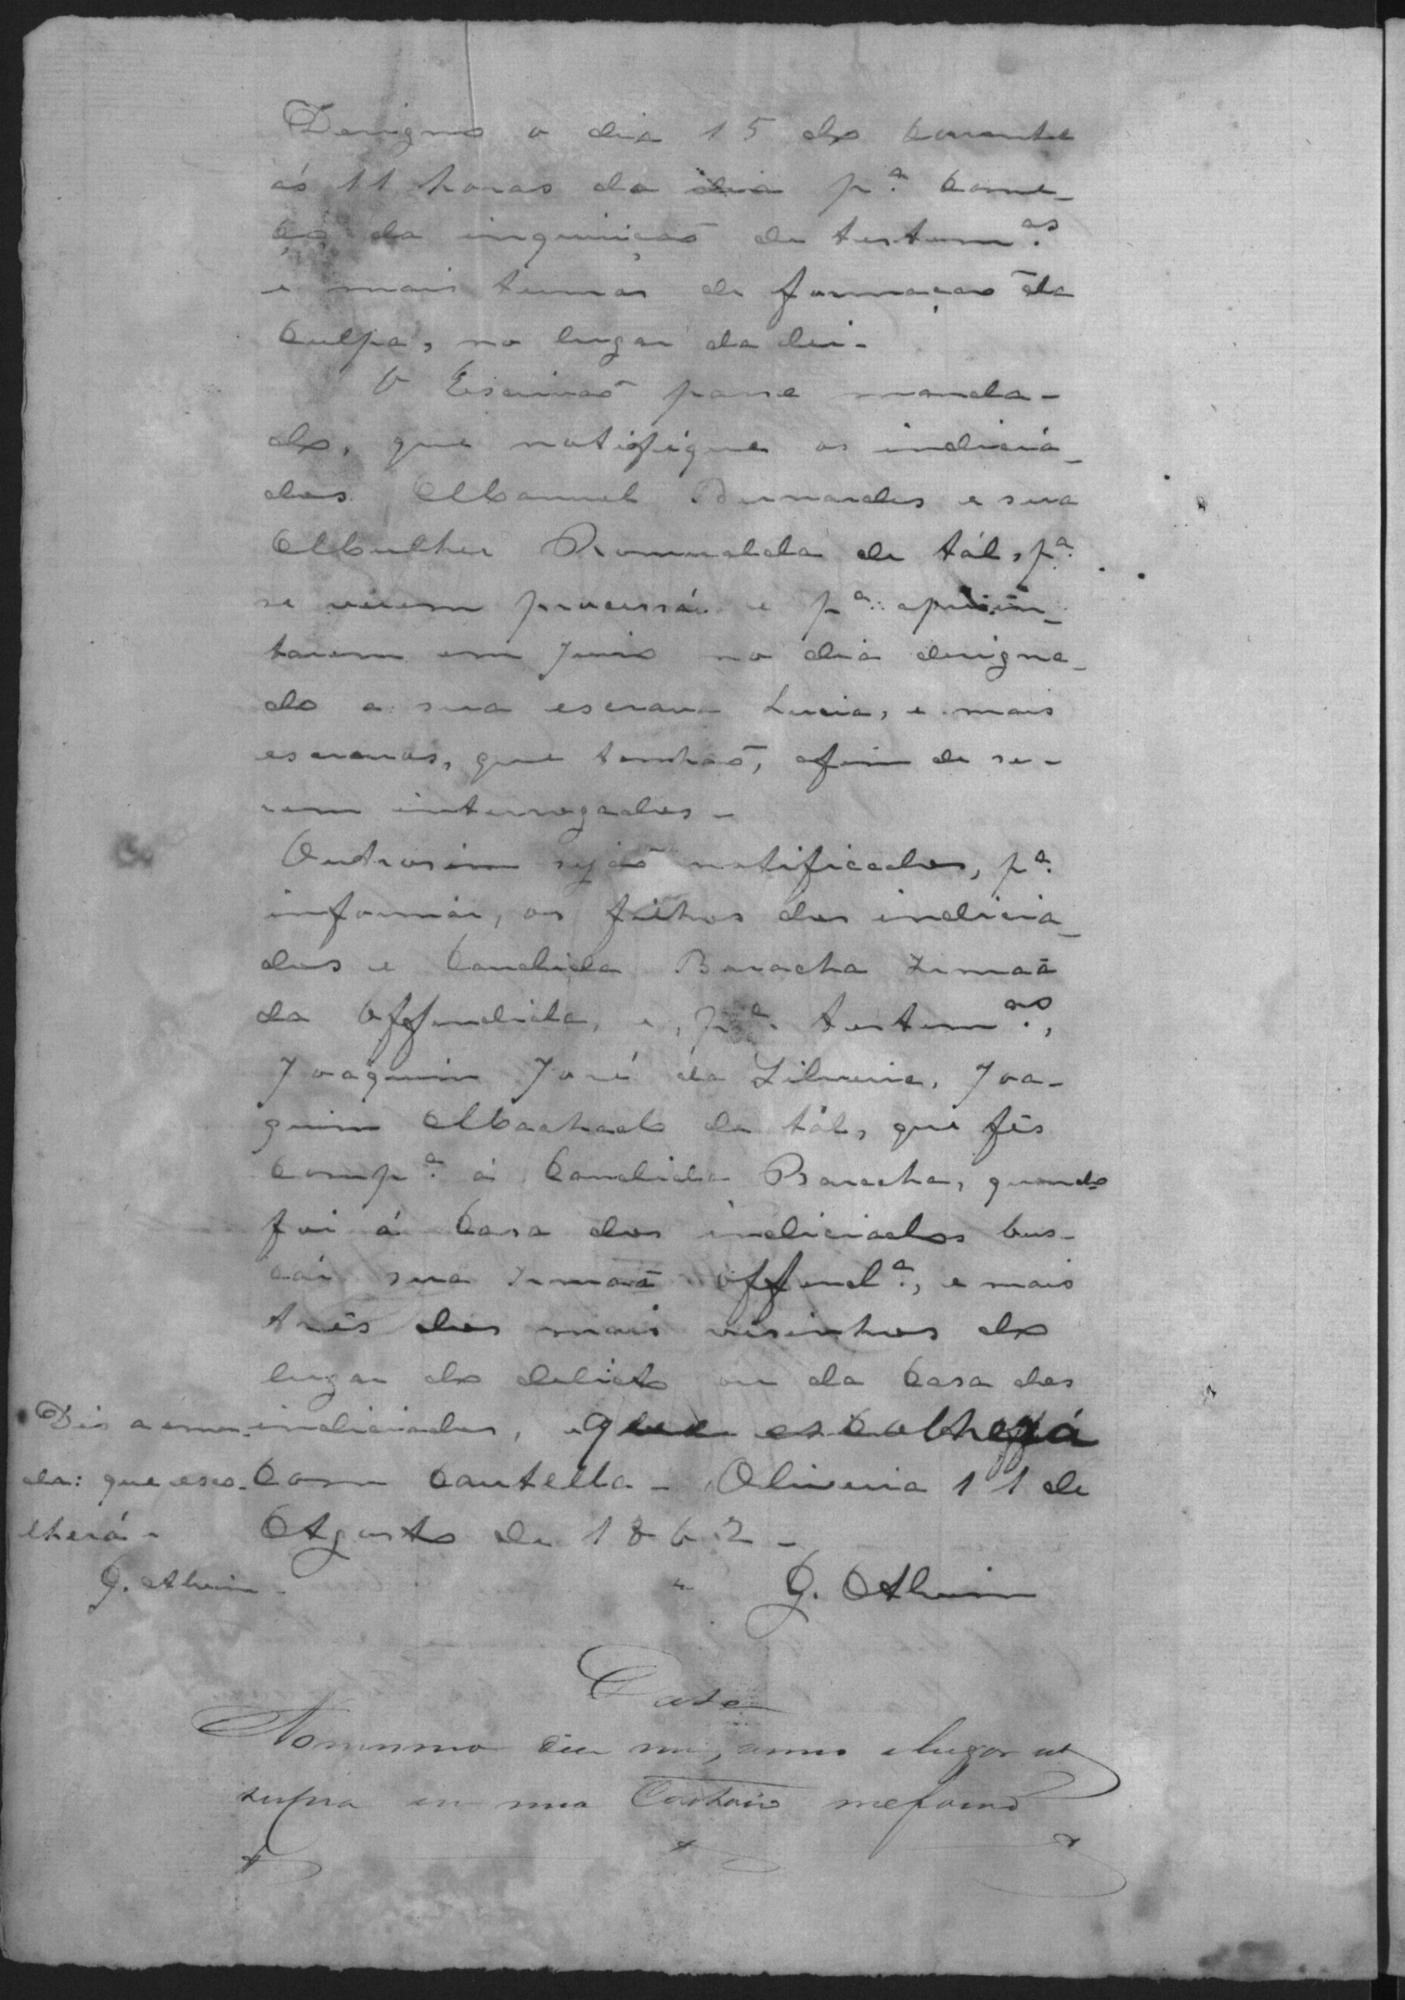 Designo o dia 15 do corrente
ás 11 horas do dia p.ª come-
ço da inquirição de testem.as
e mais termos de formação da
culpa, no lugar da lei.
O Escrivaõ passe manda-
do, que notifique os indicia-
dos Manuel Bernardes e sua
Mulher Romualda de tál, p.ª
se verem processár e p.ª apresen-
tarem em Juiso no dia designa-
do a sua escrava Lucia, e mais
escravos, que tenhaõ, afim de se-
rem interrogados -
Outrosim sejaõ notificados, p.ª
informár, os filhos dos indicia-
dos e Candida Baracha Irmaã
da Offendida, e, p.ª testem.as,
Joaquim José da Silveira, Joa-
quim Machado de tál, que fês
comp.ª á Candida Baracha, quando
foi á casa dos indiciados bus-
cár sua Irmaã offend.ª, e mais
três dos mais visinhos do
lugar do delicto ou da casa dos
indiciados, que escolherá
com cautella - Oliveira 11 de
Agosto de 1862 -
G. Alvim
Dis a emen-
da: que esco-
lherá -
G. Alvim
Data
No mesmo dia mes, anno e lugar ut
supra em meu Cartorio me foraõ